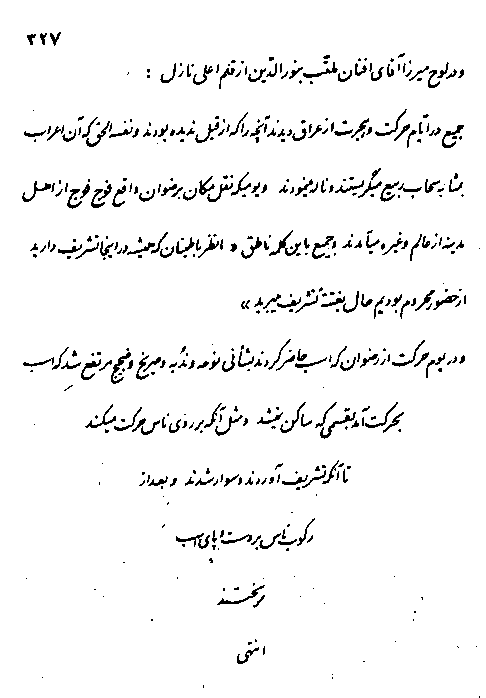 ۳۲۷
و در لوح میرزا آقای افنان ملقّب بنورالدّین از قلم اعلی نازل :
جمیع در ایّام حرکت و هجرت از عراق دیدند آنچه را که از قبل ندیده بودند و نفسه الحق که آن اعراب
بمثابه سحاب ربیع میگریستند و ناله مینمودند و یومیکه نقل مکان برضوان واقع فوج فوج از اهل
مدینه از عالم و غیره میآمدند و جمیع باین کلمه ناطق « انظر باطمینان که همیشه در اینجا تشریف دارید
از حضور محروم بودیم حال بغتتهً تشریف میبرید »
و در یوم حرکت از رضوان که اسب حاضر کردند بشأنی نوحه و ندبه و صریخ و ضجیج مرتفع شد که اسب
بحرکت آمد بقسمی که ساکن نمیشد و مثل آنکه بر روی ناس حرکت میکند
تا آنکه تشریف آوردند و سوار شدند و بعد از
رکوب ناس بر دست و پای اسب
میریختند
انتهی